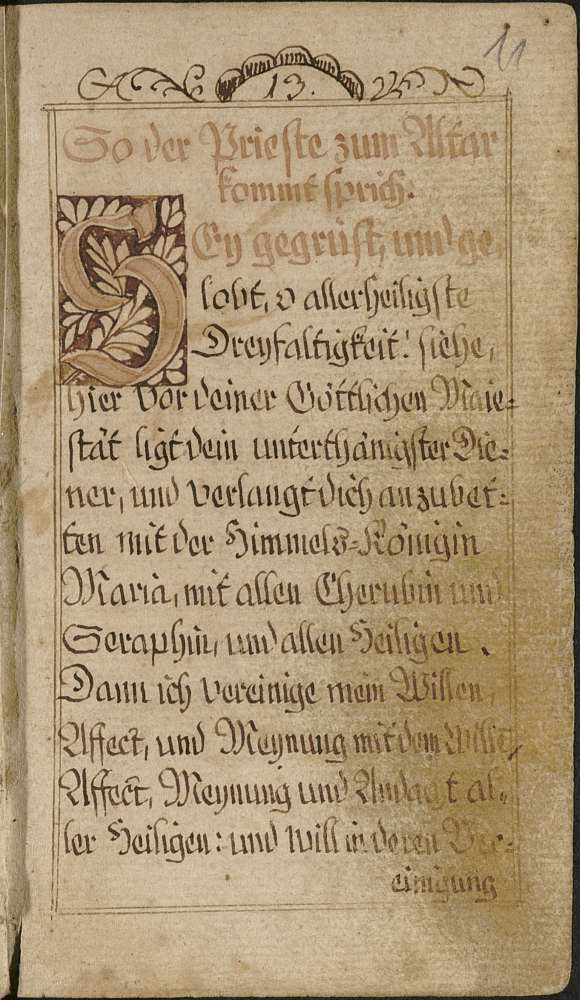 11
13.
So der Prieste zum Altar
kommt sprich.
SEy gegrüst, und ge
lobt, o allerheiligste
Dreyfaltigkeit! siehe,
hier vor deiner Göttlichen Maie=
stät ligt dein unterthänigster Die=
ner, und verlangt dich anzubet=
ten mit der Himmels=Königin
Maria, mit allen Cherubin und
Seraphin, und allen Heiligen.
Dann ich vereinige mein Willen,
Affect, und Meynung mit dem Willen,
Affect, Meynung und Andagt al=
ler Heiligen: und will in deren Ver=
einigung